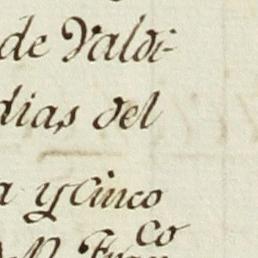 de Valdi-
dias del
a y cinco
Fran co